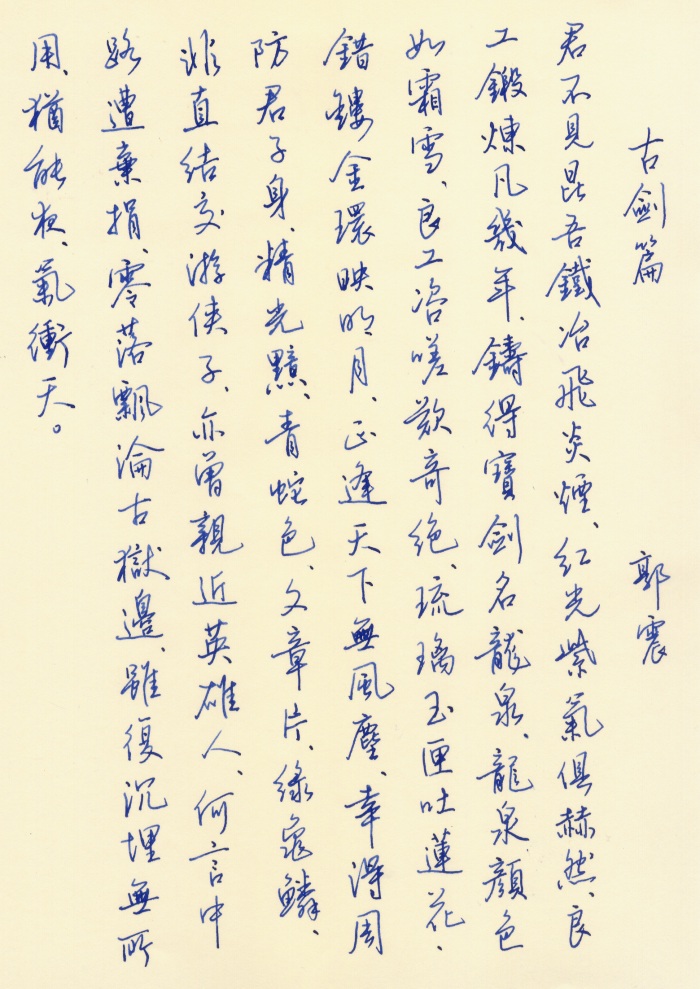 古劍篇 郭震
君不見昆吾鐵冶飛炎煙、紅光紫氣俱赫然、良
工鍛煉凡幾年、鑄得寶劍名龍泉、龍泉顏色
如霜雪、良工咨嗟歎奇絕、琉璃玉匣吐蓮花、
錯鏤金環映明月、正逢天下無風塵、幸得周
防君子身、精光黯、青蛇色、文章片、綠龜鱗、
非直結交游俠子、亦曾親近英雄人、何言中
路遭棄捐、零落飄淪古獄邊、雖復沉埋無所
用、猶能夜、氣衝天。